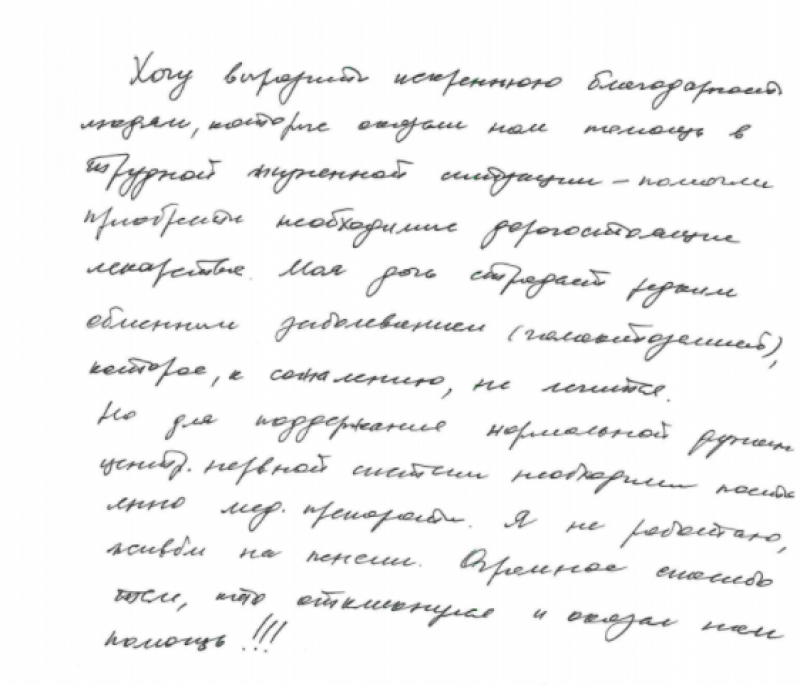 Хочу выразить искреннюю благодарность
людям, которые оказали нам помощь в
трудной жизненной ситуации – помогли
приобрести необходимые дорогостоящие
лекарства. Моя дочь страдает редким
обменным заболеванием (галактоземией),
которое, к сожалению, не лечится.
Но для поддержания нормальной функции
центр. нервной системы необходимы посто
янно мед. препараты. Я не работаю,
живём на пенсии. Огромное спасибо
тем, кто откликнулся и оказал нам
помощь!!!